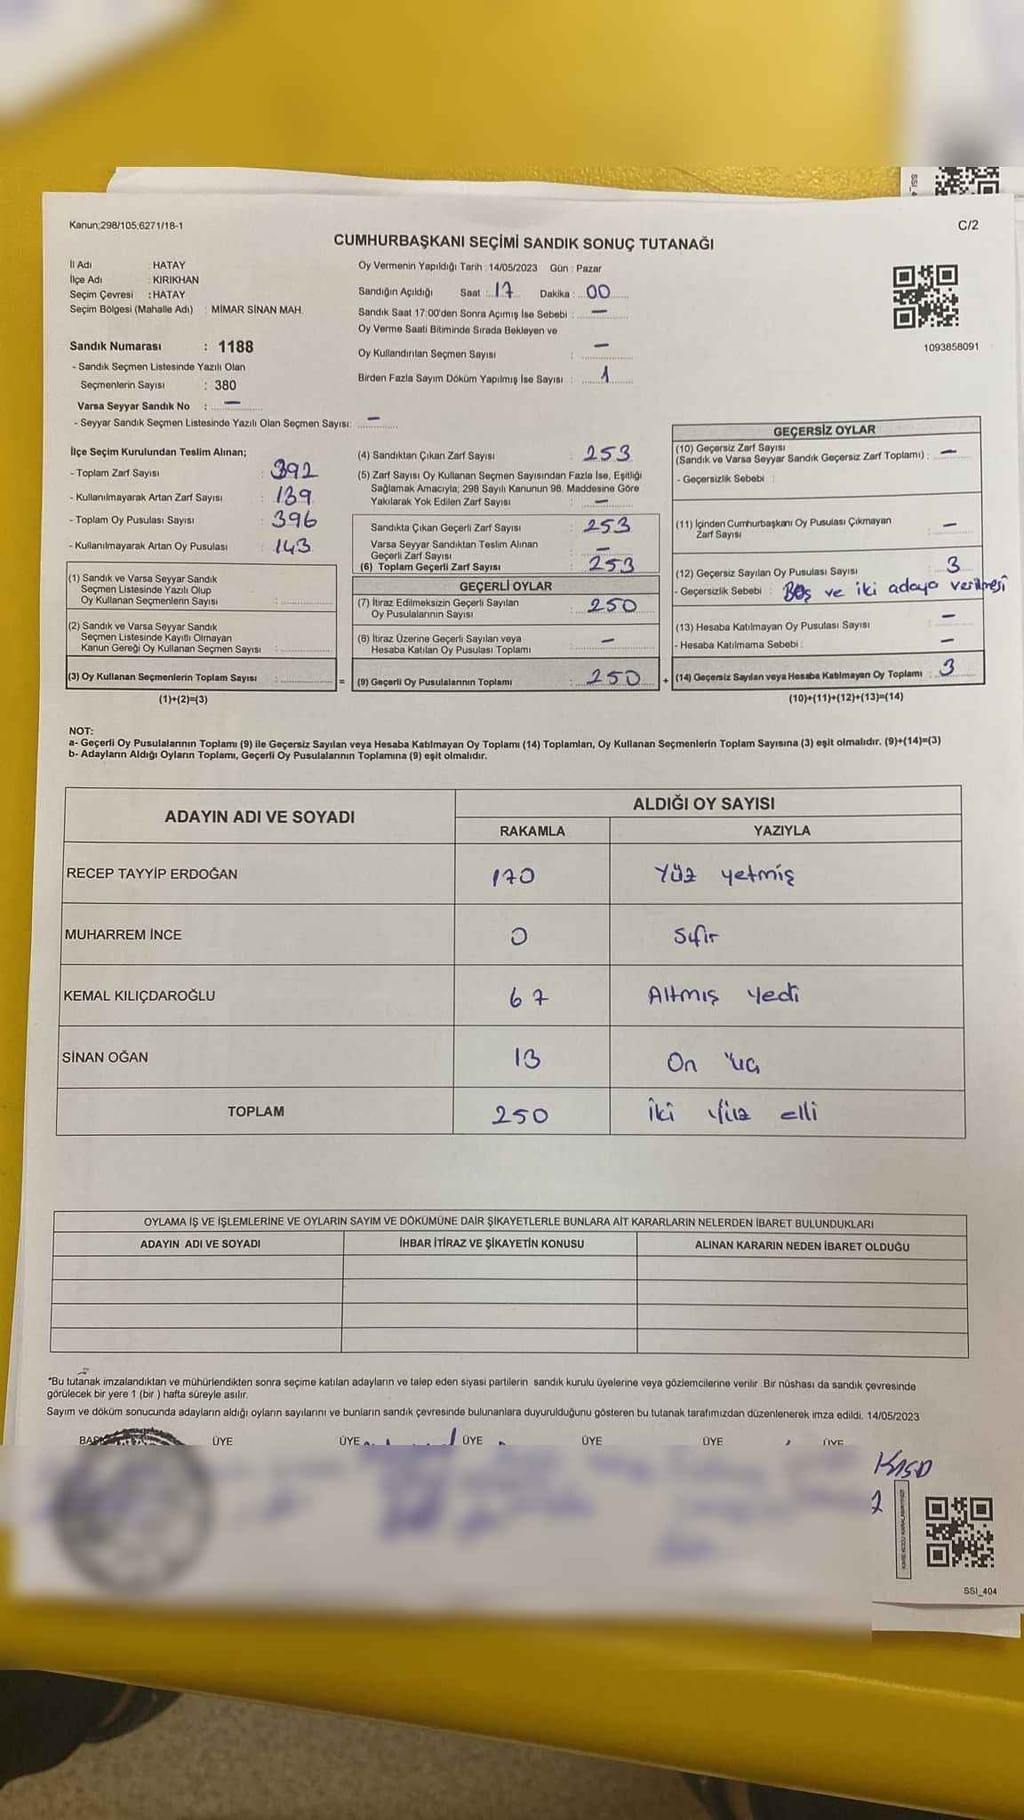 SSI_4
Kanun;298/105;6271/18-1
C/2
CUMHURBAŞKANI SEÇİMİ SANDIK SONUÇ TUTANAĞI
İl Adı : HATAY
İlçe Adı : KIRIKHAN
Seçim Çevresi : HATAY
Seçim Bölgesi (Mahalle Adı) : MİMAR SİNAN MAH.
Oy Vermenin Yapıldığı Tarih : 14/05/2023 Gün : Pazar
Sandığın Açıldığı Saat : 17 Dakika : 00
Sandık Saat 17:00'den Sonra Açımış İse Sebebi : —
Oy Verme Saati Bitiminde Sırada Bekleyen ve
Oy Kullandırılan Seçmen Sayısı : —
Birden Fazla Sayım Döküm Yapılmış İse Sayısı : 1
1093858091
Sandık Numarası : 1188
- Sandık Seçmen Listesinde Yazılı Olan
Seçmenlerin Sayısı : 380
Varsa Seyyar Sandık No : —
- Seyyar Sandık Seçmen Listesinde Yazılı Olan Seçmen Sayısı: —
İlçe Seçim Kurulundan Teslim Alınan;
- Toplam Zarf Sayısı : 392
- Kullanılmayarak Artan Zarf Sayısı : 139
- Toplam Oy Pusulası Sayısı : 396
- Kullanılmayarak Artan Oy Pusulası : 143
(1) Sandık ve Varsa Seyyar Sandık
Seçmen Listesinde Yazılı Olup
Oy Kullanan Seçmenlerin Sayısı :
(2) Sandık ve Varsa Seyyar Sandık
Seçmen Listesinde Kayıtlı Olmayan
Kanun Gereği Oy Kullanan Seçmen Sayısı :
(3) Oy Kullanan Seçmenlerin Toplam Sayısı :
(1)+(2)=(3)
=
(4) Sandıktan Çıkan Zarf Sayısı : 253
(5) Zarf Sayısı Oy Kullanan Seçmen Sayısından Fazla İse, Eşitliği
Sağlamak Amacıyla; 298 Sayılı Kanunun 98. Maddesine Göre
Yakılarak Yok Edilen Zarf Sayısı : —
Sandıkta Çıkan Geçerli Zarf Sayısı : 253
Varsa Seyyar Sandıktan Teslim Alınan
Geçerli Zarf Sayısı : —
(6) Toplam Geçerli Zarf Sayısı : 253
GEÇERLİ OYLAR
(7) İtiraz Edilmeksizin Geçerli Sayılan
Oy Pusulalarının Sayısı : 250
(8) İtiraz Üzerine Geçerli Sayılan veya
Hesaba Katılan Oy Pusulası Toplamı : —
(9) Geçerli Oy Pusulalarının Toplamı : 250
+
GEÇERSİZ OYLAR
(10) Geçersiz Zarf Sayısı
(Sandık ve Varsa Seyyar Sandık Geçersiz Zarf Toplamı) : —
- Geçersizlik Sebebi :
(11) İçinden Cumhurbaşkanı Oy Pusulası Çıkmayan
Zarf Sayısı : —
(12) Geçersiz Sayılan Oy Pusulası Sayısı : 3
- Geçersizlik Sebebi : Boş ve iki adaya verilmesi
(13) Hesaba Katılmayan Oy Pusulası Sayısı : —
- Hesaba Katılmama Sebebi : —
(14) Geçersiz Sayılan veya Hesaba Katılmayan Oy Toplamı : 3
(10)+(11)+(12)+(13)=(14)
NOT:
a- Geçerli Oy Pusulalarının Toplamı (9) ile Geçersiz Sayılan veya Hesaba Katılmayan Oy Toplamı (14) Toplamları, Oy Kullanan Seçmenlerin Toplam Sayısına (3) eşit olmalıdır. (9)+(14)=(3)
b- Adayların Aldığı Oyların Toplamı, Geçerli Oy Pusulalarının Toplamına (9) eşit olmalıdır.
ADAYIN ADI VE SOYADI
ALDIĞI OY SAYISI
RAKAMLA YAZIYLA
RECEP TAYYİP ERDOĞAN 170 Yüz yetmiş
MUHARREM İNCE 0 Sıfır
KEMAL KILIÇDAROĞLU 67 Altmış Yedi
SİNAN OĞAN 13 On üç
TOPLAM 250 İki yüz elli
OYLAMA İŞ VE İŞLEMLERİNE VE OYLARIN SAYIM VE DÖKÜMÜNE DAİR ŞİKAYETLERLE BUNLARA AİT KARARLARIN NELERDEN İBARET BULUNDUKLARI
ADAYIN ADI VE SOYADI İHBAR İTİRAZ VE ŞİKAYETİN KONUSU ALINAN KARARIN NEDEN İBARET OLDUĞU
*Bu tutanak imzalandıktan ve mühürlendikten sonra seçime katılan adayların ve talep eden siyasi partilerin sandık kurulu üyelerine veya gözlemcilerine verilir. Bir nüshası da sandık çevresinde
görülecek bir yere 1 (bir ) hafta süreyle asılır.
Sayım ve döküm sonucunda adayların aldığı oyların sayılarını ve bunların sandık çevresinde bulunanlara duyurulduğunu gösteren bu tutanak tarafımızdan düzenlenerek imza edildi. 14/05/2023
ÜYE ÜYE ÜYE ÜYE ÜYE ÜYE
SSI_404